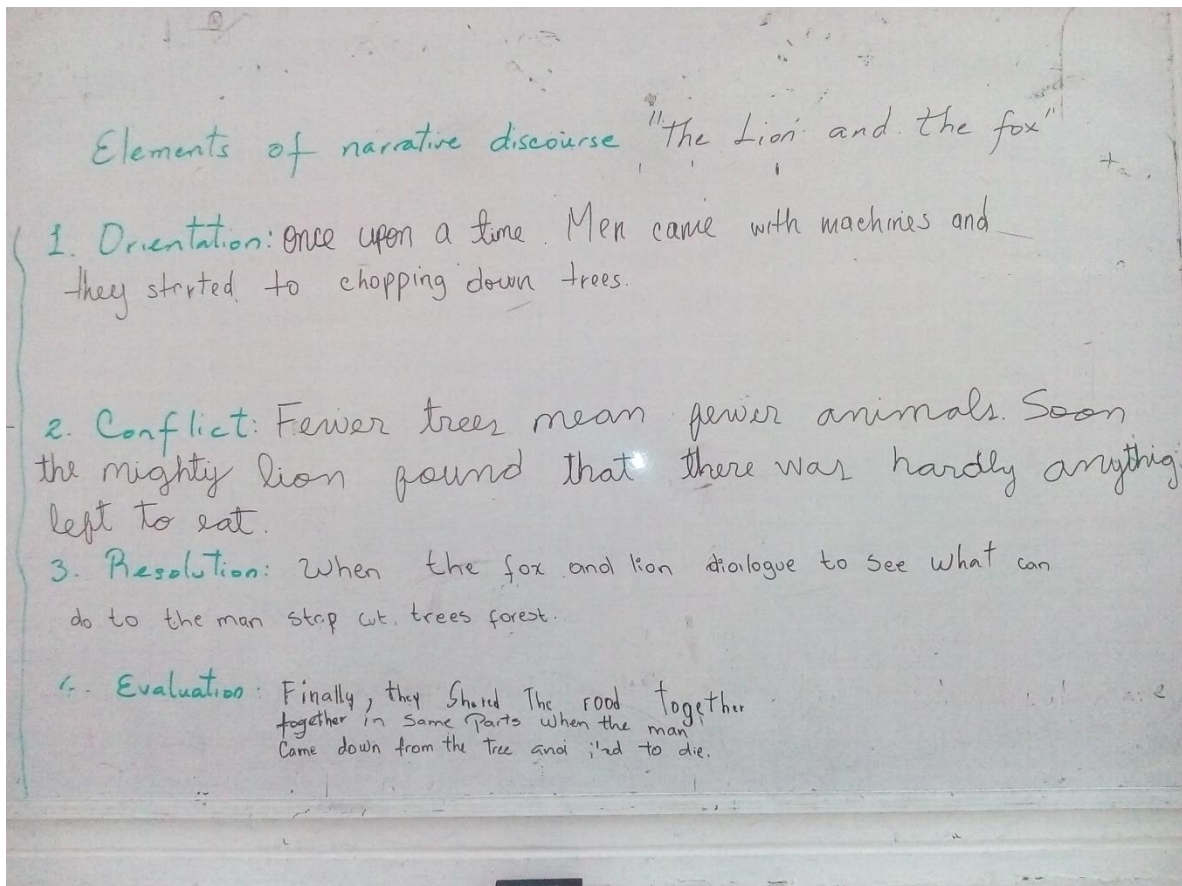 Elements of narrative discourse "The Lion and the fox"
1. Orientation: Once upon a time. Men came with machines and
they started to chopping down trees.
2. Conflict: Fewer trees mean fewer animals. Soon
the mighty lion found that there was hardly anythig
left to eat.
3. Resolution: When the fox and lion dialogue to see what can
do to the man stop cut trees forest.
4. Evaluation: Finally, they Shared The food Together
together in Same Parts when the man
Came down from the Tree and to die.